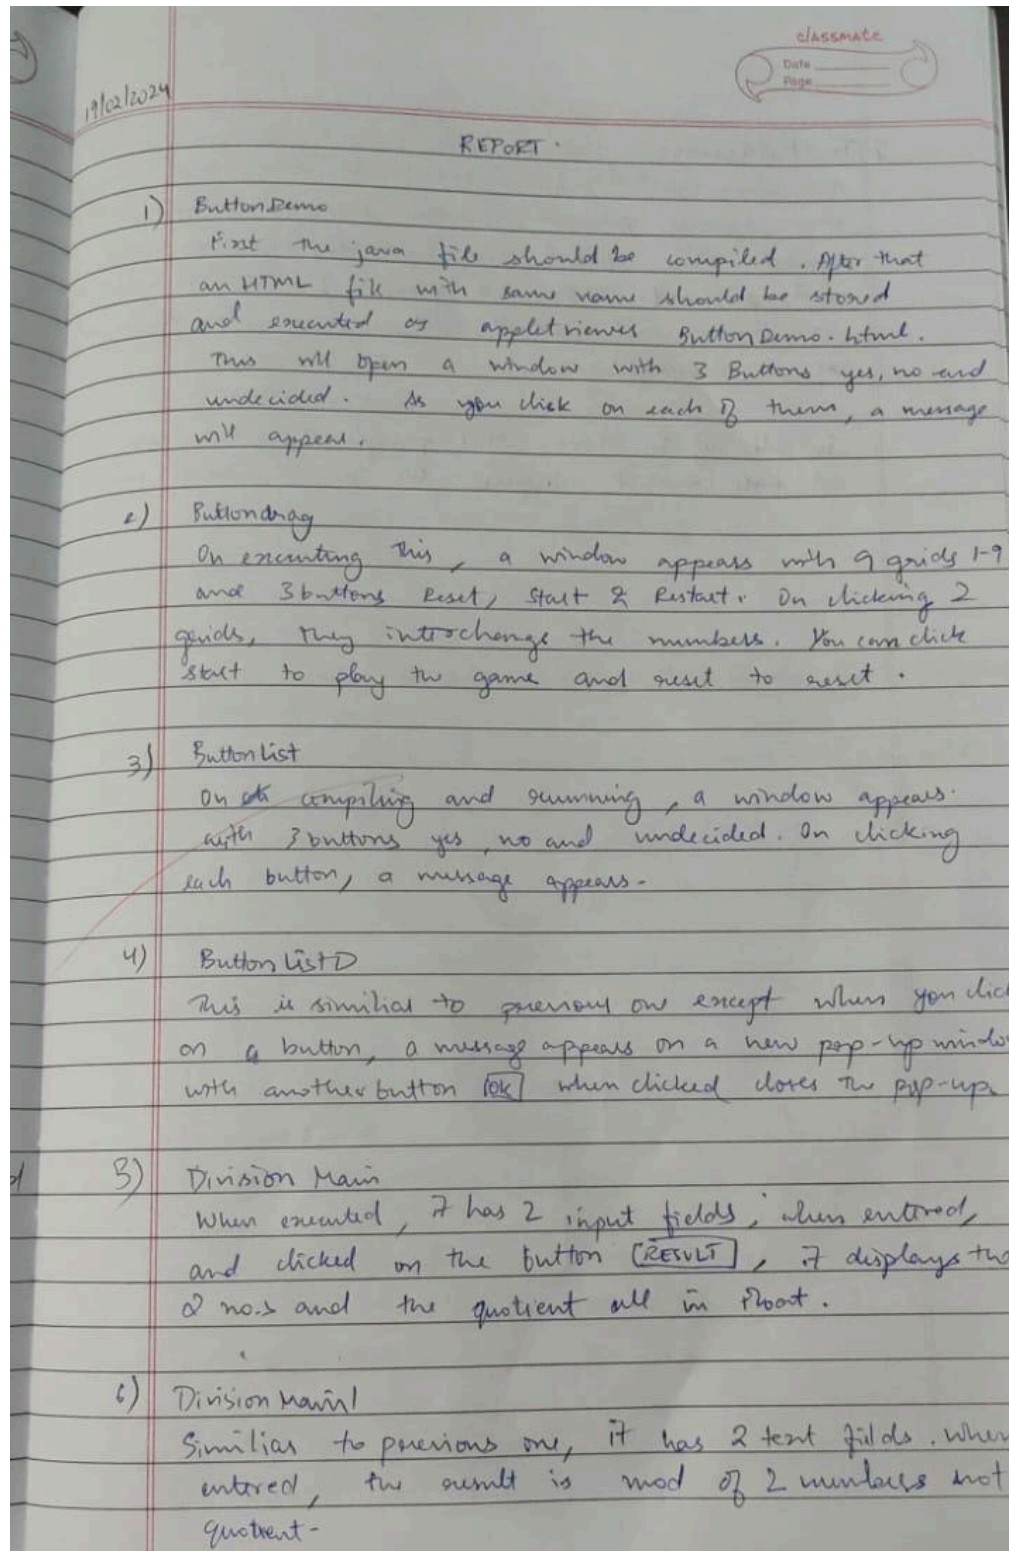 classmate
Date
Page
19/02/2024
REPORT.
1) ButtonDemo
First the java file should be compiled. After that
an HTML file with same name should be stored
and executed as appletviewer ButtonDemo.html.
This will open a window with 3 Buttons yes, no and
undecided. As you click on each of them, a message
will appear.
2) Buttondrag
On executing this, a window appears with 9 grids 1-9
and 3 buttons Reset, Start & Restart. On clicking 2
grids, they interchange the numbers. You can click
start to play the game and reset to reset.
3) ButtonList
On compiling and running, a window appears.
with 3 buttons yes, no and undecided. On clicking
each button, a message appears-
4) ButtonListD
This is similiar to previous one except when you clic
on a button, a message appears on a new pop-up windo
with another button OK when clicked closes the pop-up.
5) Division Main
When executed, it has 2 input fields, when entered,
and clicked on the button RESULT, it displays the
2 no.s and the quotient all in float.
6) Division Main1
Similiar to previous one, it has 2 text fields. When
entered, the result is mod of 2 numbers not
quotient-